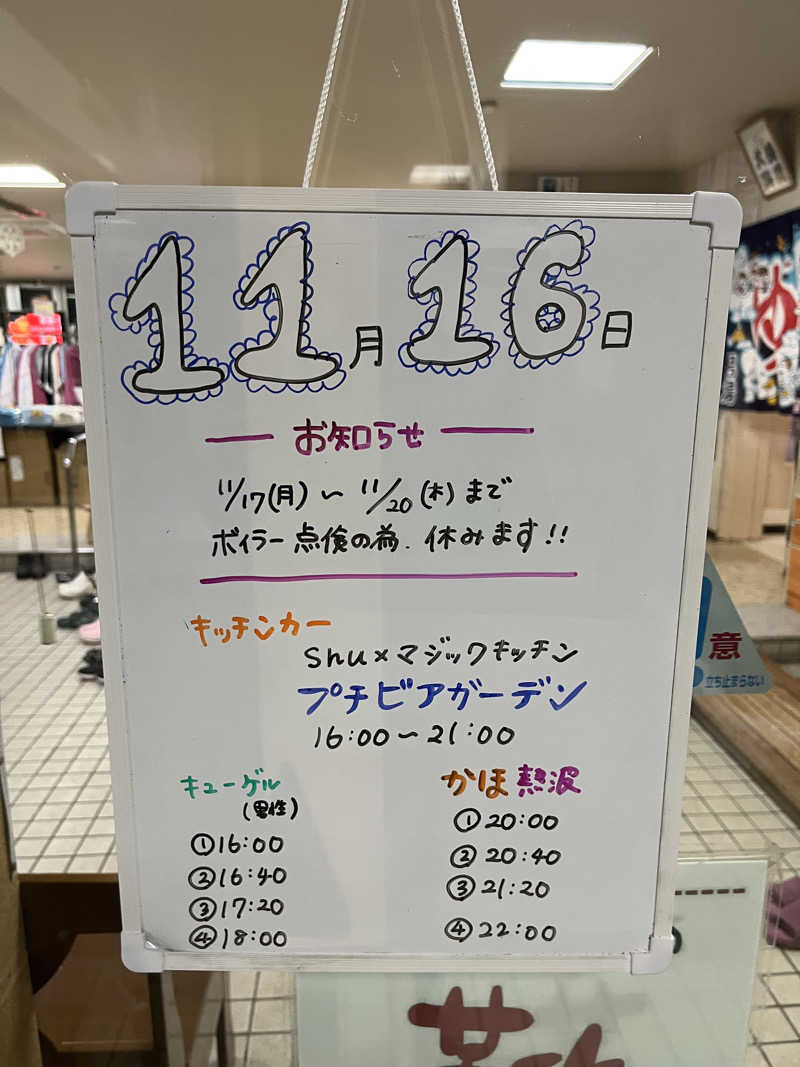 11月16日
お知らせ
11/17(月)〜11/20(木)まで
ボイラー点検の為.休みます!!
キッチンカー
Shu×マジックキッチン
プチビアガーデン
16:00〜21:00
キューゲル
(男性)
①16:00
②16:40
③17:20
④18:00
かほ熱波
①20:00
②20:40
③21:20
④22:00
意
立ち止まらない
ゆ